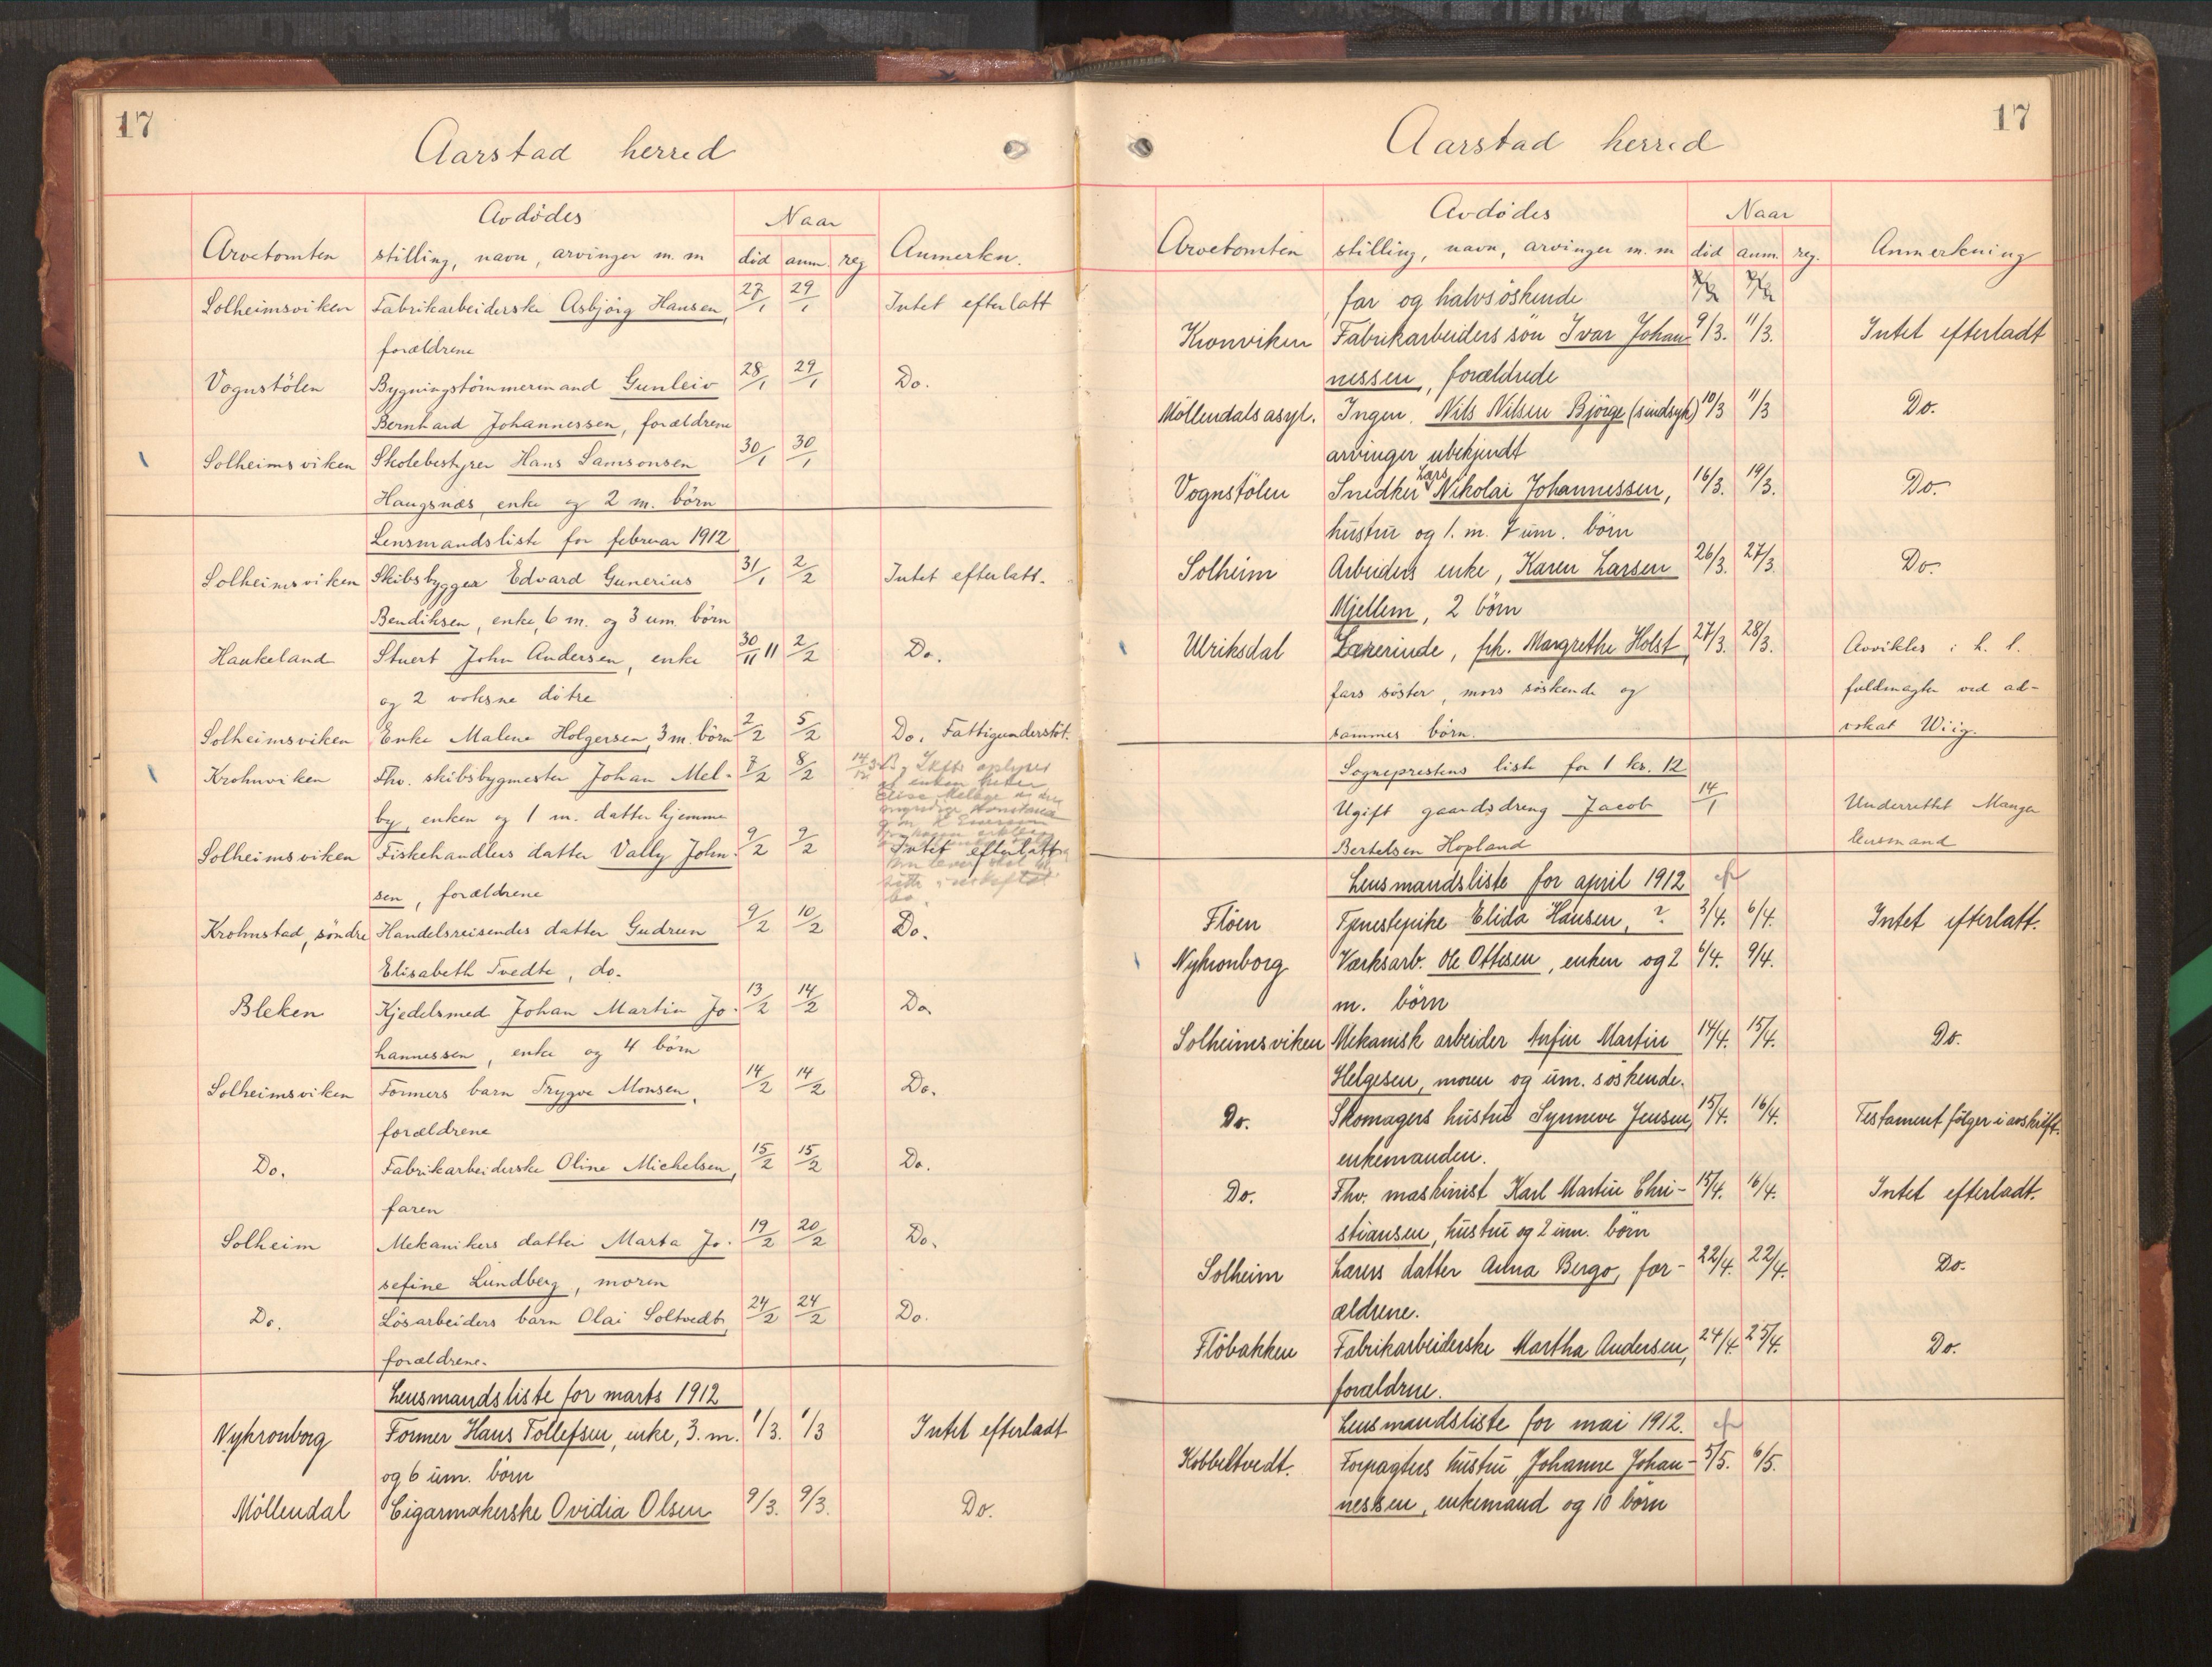 17
Aarstad herred
Arvetomten
Avdödes
stilling, navn, arvinger m. m
Naar
död anm. reg
Anmerkn.
Solheimsviken Fabrikarbeiderske Asbjörg Hansen, 27/1 29/1 Intet efterlatt
forældrene
Vognstölen Bygningstömmermand Gunleiv 28/1 29/1 Do.
Bernhard Johannessen, forældrene
Solheimsviken Skolebestyrer Hans Samsonsen 30/1 30/1
Haugsnæs, enke og 2 m. börn
Lensmandsliste for februar 1912
Solheimsviken Skibsbygger Edvard Gunerius 31/1 2/2 Intet efterlatt.
Bendiksen, enke, 6 m. og 3 um. börn
Haukeland Stuert John Andersen, enke 30/11 11 2/2 Do.
og 2 voksne dötre
Solheimsviken Enke Malene Holgersen, 3 m. börn 2/2 5/2 Do. Fattigunderstöt.
Krohnviken Fhv. skibsbygmester Johan Mel- 7/2 8/2
by, enken og 1 m. datter hjemme
Solheimsviken Fiskehandlers datter Vally John- 9/2 9/2 Intet efterlatt
sen, forældrene
Krohnstad, söndre Handelsreisendes datter Gudrun 9/2 10/2 Do.
Elisabeth Tvedte, do.
Bleken Kjedelsmed Johan Martin Jo- 13/2 14/2 Do.
hannessen, enke og 4 börn
Solheimsviken Formers barn Trygve Monsen, 14/2 14/2 Do.
forældrene
Do. Fabrikarbeiderske Oline Michelsen, 15/2 15/2 Do.
faren
Solheim Mekanikers datter Marta Jo- 19/2 20/2 Do.
sefine Lundberg, moren
Do. Lösarbeiders barn Olai Soltvedt, 24/2 24/2 Do.
forældrene.
Lensmandsliste for marts 1912
Nykronborg Former Hans Tollefsen, enke, 3. m. 1/3. 1/3 Intet efterladt
og 6 um. börn
Möllendal Cigarmakerske Ovidia Olsen 9/3. 9/3. Do.
17
Aarstad herred
Arvetomten
Avdödes
stilling, navn, arvinger m. m
Naar
död anm. reg.
Anmerkning
far og halvsöskende
Kronviken Fabrikarbeiders sön Ivar Johan- 9/3. 11/3. Intet efterladt
nessen, forældrede
Möllendals asyl. Ingen. Nils Nilsen Björge (sindsyk) 10/3 11/3 Do.
arvinger ubekjendt
Vognstölen Snedker Lars Nikolai Johannessen, 16/3. 19/3. Do.
hustru og 1. m. 7 um. börn
Solheim Arbeiders enke, Karen Larsen 26/3. 27/3. Do.
Mjellem, 2 börn
Ulriksdal Lærerinde, frk. Margrethe Holst, 27/3. 28/3. Avvikles i h. t.
fars söster, mors söskende og fuldmagten ved ad-
sammes börn. vokat Wiig.
Sogneprestens liste for 1 kv. 12
Ugift gaardsdreng Jacob 14/1 Underrettet Manger
Bertelsen Hopland lensmand
Lensmandsliste for april 1912
Flöen Tjenestepike Elida Hansen, ? 3/4. 6/4. Intet efterlatt.
Nykronborg Værksarb. Ole Ottesen, enken og 2 6/4. 9/4.
m. börn
Solheimsviken Mekanisk arbeider Anfin Martin 14/4. 15/4. Do.
Helgesen, moren og um. söskende.
Do. Skomagers hustru Synneve Jensen, 15/4. 16/4. Testament fölger i avskrift.
enkemanden.
Do. Fhv. maskinist Karl Martin Chri- 15/4. 16/4. Intet efterladt.
stiansen, hustru og 2 um. börn
Solheim Lærers datter Anna Bergo, for- 22/4. 22/4. Do.
ældrene.
Flöbakken Fabrikarbeiderske Martha Andersen, 24/4. 25/4. Do.
forældrene.
Lensmandsliste for mai 1912.
Kobbeltvedt. Forpagters hustru Johanne Johan- 5/5. 6/5.
nessen, enkemand og 10 börn